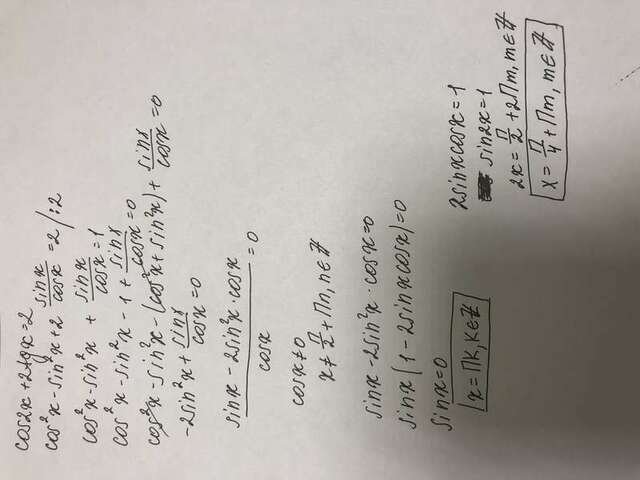 cos2x + 2tgx = 2
cos²x - sin²x + 2 sinx/cosx = 2 /:2
cos²x - sin²x + sinx/cosx = 1
cos²x - sin²x - 1 + sinx/cosx = 0
cos²x - sin²x - (cos²x + sin²x) + sinx/cosx = 0
-2sin²x + sinx/cosx = 0
(sinx - 2sin²x · cosx)/cosx = 0
cosx ≠ 0
x ≠ П/2 + Пn, n ∈ Z
sinx - 2sin²x · cosx = 0
sinx (1 - 2sinxcosx) = 0
sinx = 0
x = Пk, k ∈ Z
2sinxcosx = 1
sin2x = 1
2x = П/2 + 2Пm, m ∈ Z
x = П/4 + Пm, m ∈ Z